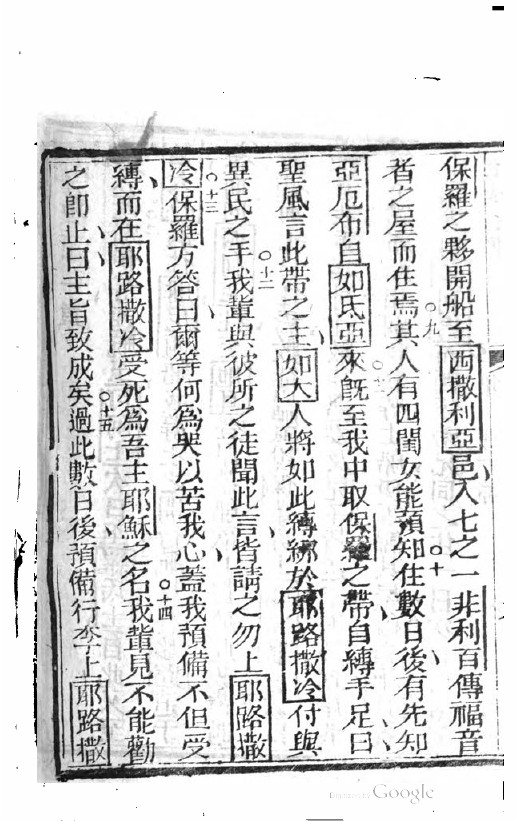 保羅之夥開船至西撒利亞邑入七之一非利百傳福音
者之屋而住焉○九其人有四閨女能預知○十住數日後有先知
亞厄布自如氐亞來○十一既至我中取保羅之帶自縛手足曰
聖風言此帶之主如大人將如此縛綁於耶路撒冷付與
異民之手○十二我輩與彼所之徒聞此言皆請之勿上耶路撒
冷○十三保羅方答曰爾等何為哭以苦我心蓋我預備不但受
縛而在耶路撒冷受死為吾主耶穌之名○十四我輩見不能勸
之即止曰主旨致成矣○十五過此數日後預備行李上耶路撒
Digitized by Google